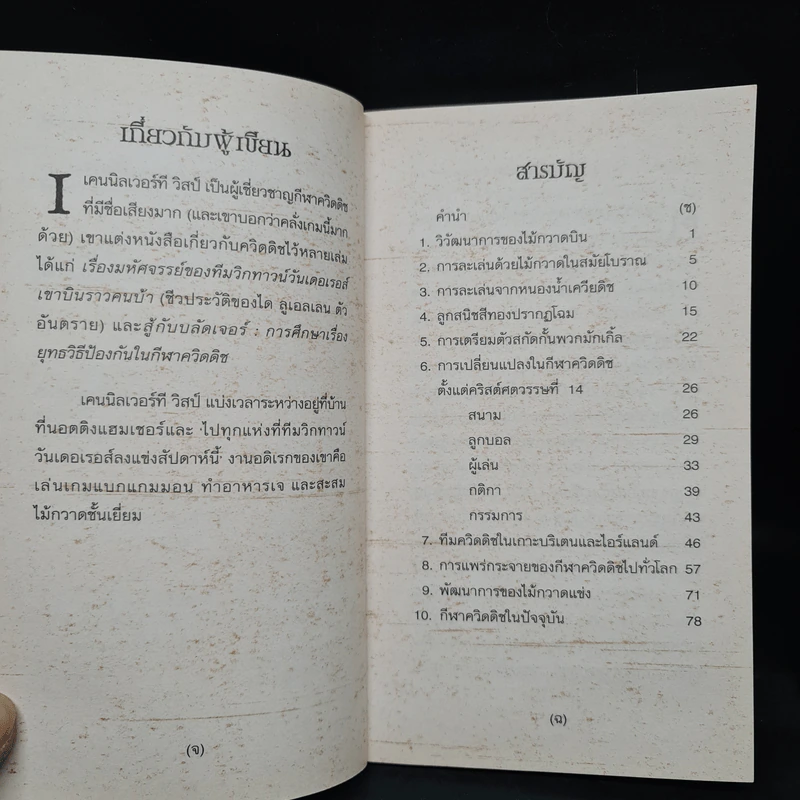 เกี่ยวกับผู้เขียน
เคนนิลเวอร์ที วิสป์ เป็นผู้เชี่ยวชาญกีฬาควิดดิช
ที่มีชื่อเสียงมาก (และเขาบอกว่าคลั่งเกมนี้มาก
ด้วย) เขาแต่งหนังสือเกี่ยวกับควิดดิชไว้หลายเล่ม
ได้แก่ เรื่องมหัศจรรย์ของทีมวิกทาวน์วันเดอเรอส์
เขาบินราวคนบ้า (ชีวประวัติของได ลูเอลเลน ตัว
อันตราย) และสู้กับบลัดเจอร์ : การศึกษาเรื่อง
ยุทธวิธีป้องกันในกีฬาควิดดิช
เคนนิลเวอร์ที วิสป์ แบ่งเวลาระหว่างอยู่ที่บ้าน
ที่นอตติงแฮมเชอร์และ 'ไปทุกแห่งที่ทีมวิกทาวน์
วันเดอเรอส์ลงแข่งสัปดาห์นี้' งานอดิเรกของเขาคือ
เล่นเกมแบกแกมมอน ทำอาหารเจ และสะสม
ไม้กวาดชั้นเยี่ยม
(จ)
สารบัญ
คำนำ (ช)
1. วิวัฒนาการของไม้กวาดบิน 1
2. การละเล่นด้วยไม้กวาดในสมัยโบราณ 5
3. การละเล่นจากหนองน้ำเควียดิช 10
4. ลูกสนิชสีทองปรากฏโฉม 15
5. การเตรียมตัวสกัดกั้นพวกมักเกิ้ล 22
6. การเปลี่ยนแปลงในกีฬาควิดดิช
ตั้งแต่คริสต์ศตวรรษที่ 14 26
สนาม 26
ลูกบอล 29
ผู้เล่น 33
กติกา 39
กรรมการ 43
7. ทีมควิดดิชในเกาะบริเตนและไอร์แลนด์ 46
8. การแพร่กระจายของกีฬาควิดดิชไปทั่วโลก 57
9. พัฒนาการของไม้กวาดแข่ง 71
10. กีฬาควิดดิชในปัจจุบัน 78
(ฉ)